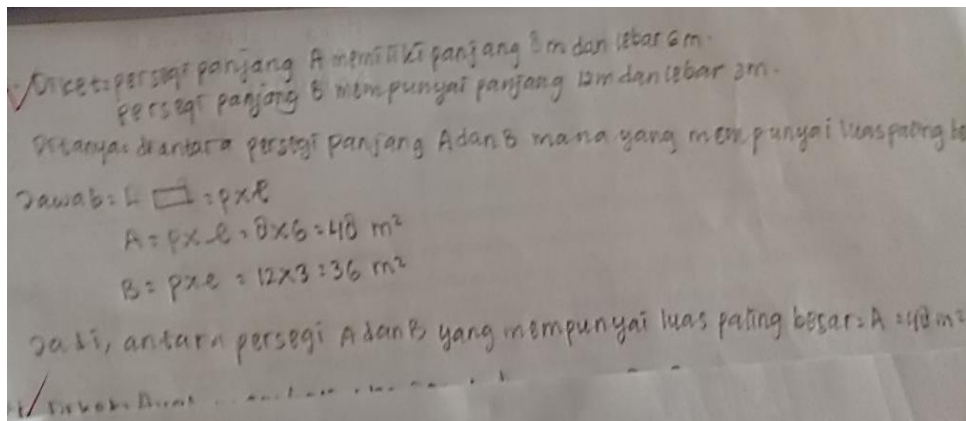 Diket: persegi panjang A memiliki panjang 8m dan lebar 6m.
persegi panjang B mempunyai panjang 12m dan lebar 3m.
Ditanya: diantara persegi panjang A dan B mana yang mempunyai luas paling be
Jawab: L ▭ = p x l
A = p x l = 8 x 6 = 48 m²
B = p x l = 12 x 3 = 36 m²
Jadi, antara persegi A dan B yang mempunyai luas paling besar = A = 48 m²